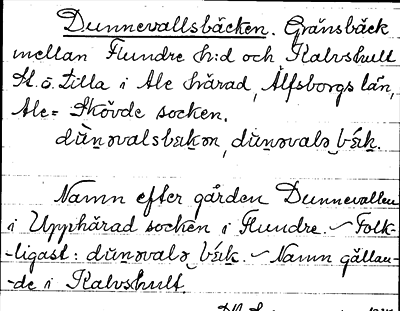 Dunnevallsbäcken. Gränsbäck
mellan Flundre h:d och Kalvshult
St. o. Lilla i Ale härad, Älfsborgs län,
Ale-Skövde socken.
dùn̯əvalsbɛkən, dùn̯əvalə bɛ́ık.
Namn efter gården Dunnevallen
i Upphärad socken i Flundre. ~ Folk-
-ligast: dùn̯əvalə bɛ́ık. ~ Namn gällan-
-de i Kalvshult.